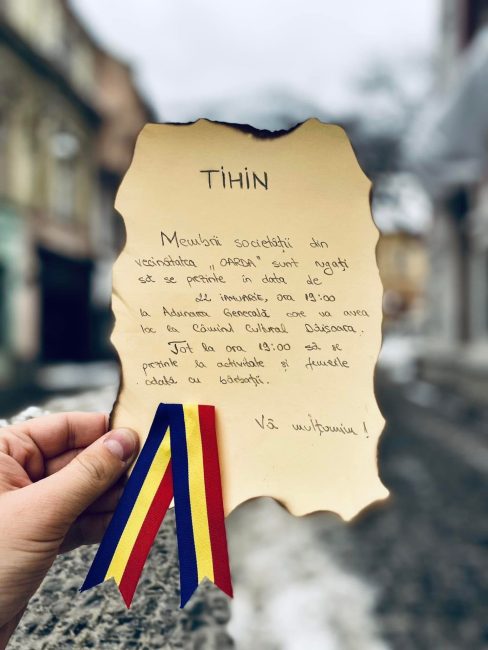 TIHIN
Membrii societății din
vecinătatea „OARDA" sunt rugați
să se prezinte în data de
22 IANUARIE, ora 19:00
la Adunarea Generală care va avea
loc la Căminul Cultural Daișoara.
Tot la ora 19:00 să se
prezinte la activitate și femeile
odată cu bărbații.
Vă mulțumim!